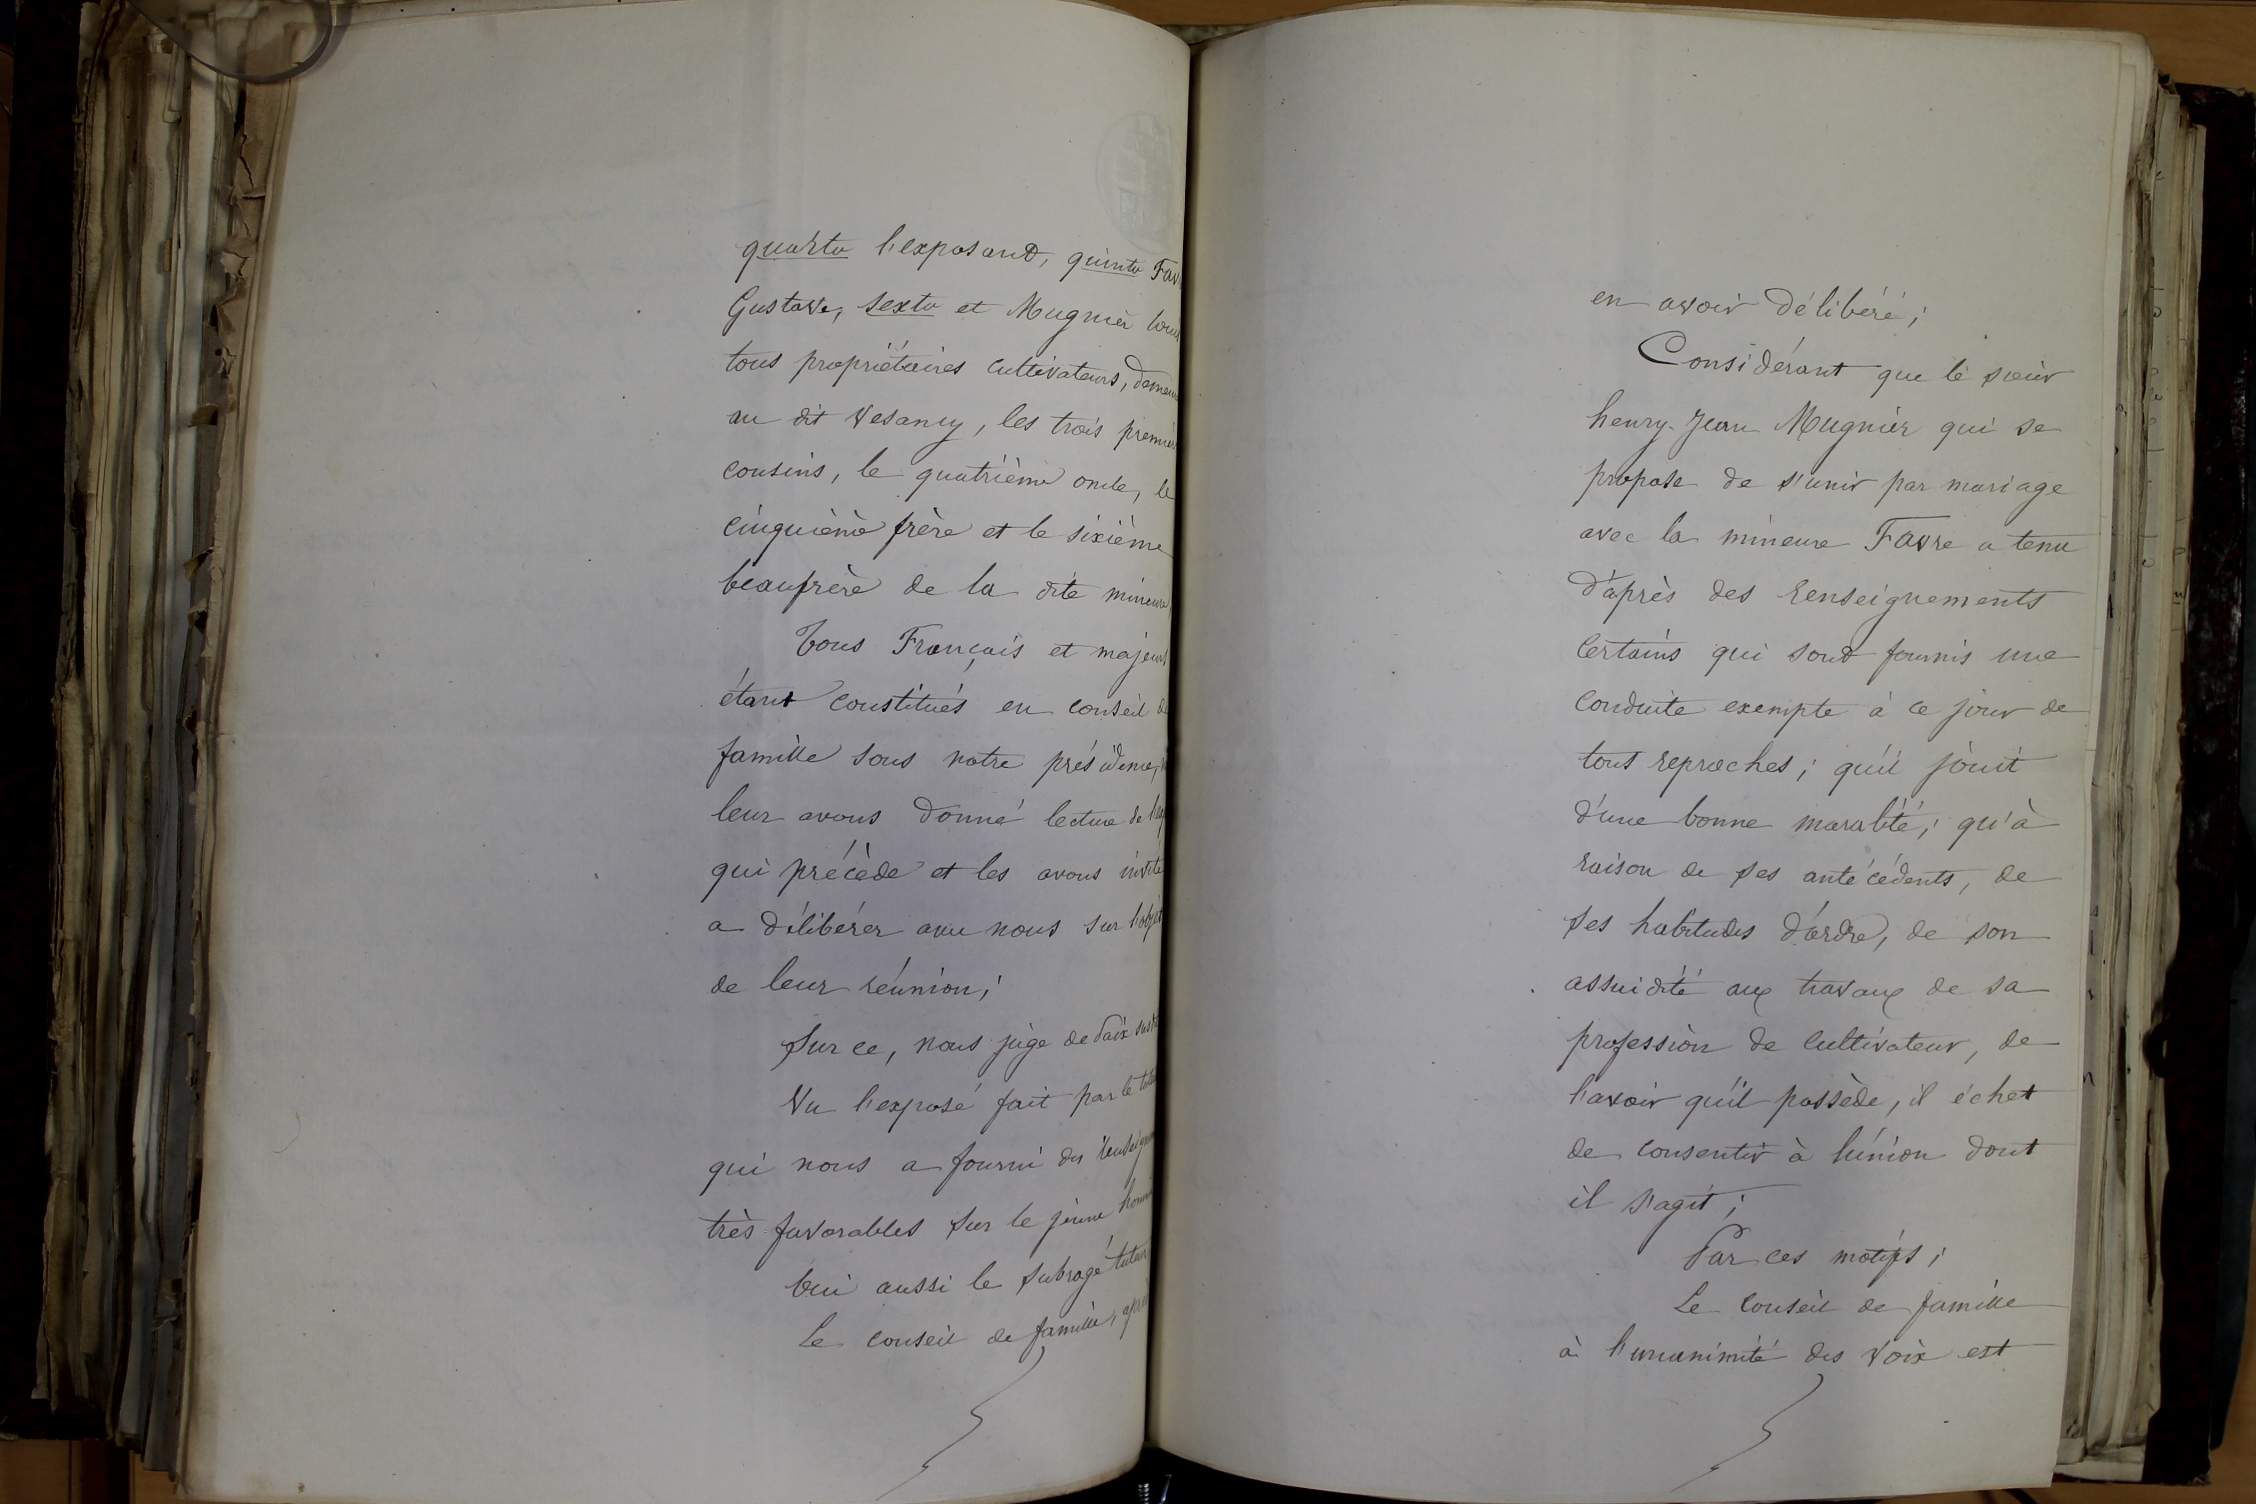 quarto l'exposant, quinto Fav
Gustave, sexto et Mugnier
tous propriétaires cultivateurs, demeu
au dit Vesancy, les trois premiers
cousins, le quatrième oncle, le
cinquième frère et le sixième
beaufrère de la dite mineure
Tous Français et majeurs
étant constitués en conseil de
famille sous notre présidence,
leur avons donné lecture de l'exp
qui précède et les avons invité
a délibérer avec nous sur l'objet
de leur réunion;
Sur ce, nous juge de Paix sus
Vu l'exposé fait par le tuteur
qui nous a fourni des renseign
très favorables sur le jeune homme
Oui aussi le subrogé tuteur
Le conseil de famille, après
en avoir délibéré;
Considérant que le sieur
henry-Jean Mugnier qui se
propose de s'unir par mariage
avec la mineure Favre a tenu
d'après des renseignements
certains qui sont fournis une
conduite exempte à ce jour de
tout reproches; qu'il jouit
d'une bonne moralité; qu'à
raison de ses antécédents, de
ses habitudes d'ordre, de son
assuidité aux travaux de sa
profession de cultivateur, de
l'avoir qu'il possède, il échet
de consentir à l'union dont
il s'agit;
Par ces motifs;
Le Conseil de famille
à l'unanimité des voix est